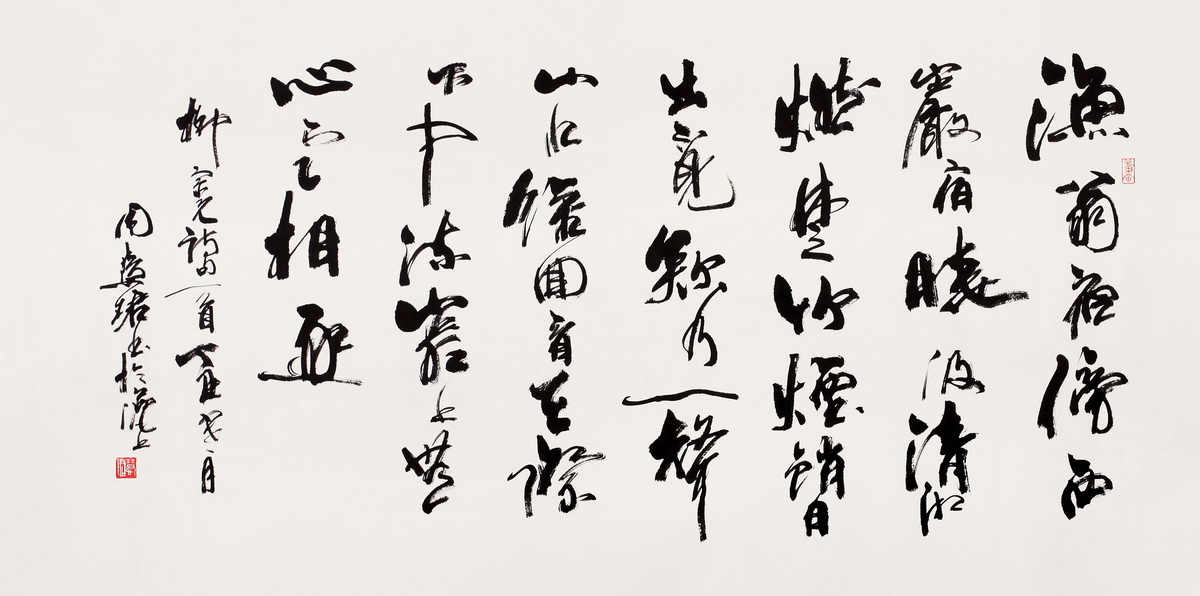 漁翁夜傍西
巖宿曉汲清湘
燃楚竹煙銷日
出不見欸乃一聲
山水綠回看天際
下中流巖上無
心雲相逐
柳宗元詩一首 月
周慧珺書於滬上